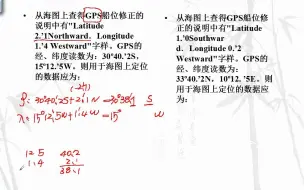 • 从海图上查得GPS船位修正
的说明中有"Latitude
2.'1Northward. Longitude
1.'4 Westward"字样。GPS的
经、纬度读数为：30°40.'2S，
15°12.'5W，则用于海图上定位
的数据应为：
φ: 30°40.2S + 2.1N → 30°38.1 S
(-2.1)
λ = 15°12.5W + 1.4W = 15° W
12.5 40.2
1.4 2.1
38.1
• 从海图上查得GPS船位修
正的说明中有"Latitude
1.'0Southwar
d. Longitude 0.'2
Westward"字样。GPS的
经、纬度读数为：
30°40.'2N，10°12.'5E。则
用于海图上定位的数据应
为：